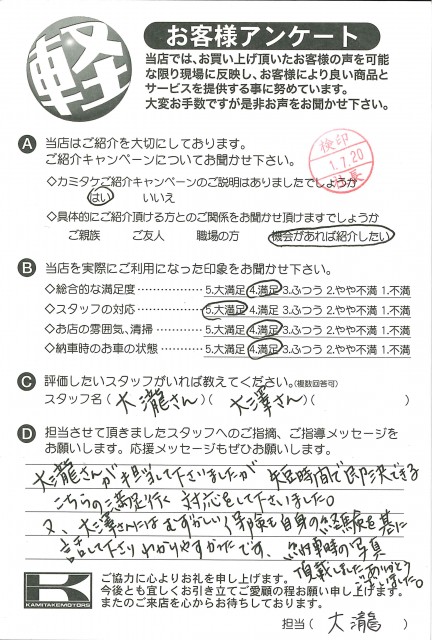 軽
お客様アンケート
当店では、お買い上げ頂いたお客様の声を可能
な限り現場に反映し、お客様により良い商品と
サービスを提供する事に努めています。
大変お手数ですが是非お声をお聞かせ下さい。
検印
1.7.20
A 当店はご紹介を大切にしております。
ご紹介キャンペーンについてお聞かせ下さい。
◇カミタケご紹介キャンペーンのご説明はありましたでしょうか
はい いいえ
◇具体的にご紹介頂ける方とのご関係をお聞かせ頂けますでしょうか
ご親族 ご友人 職場の方 機会があれば紹介したい
B 当店を実際にご利用になった印象をお聞かせ下さい。
◇総合的な満足度……………… 5.大満足 4.満足 3.ふつう 2.やや不満 1.不満
◇スタッフの対応……………… 5.大満足 4.満足 3.ふつう 2.やや不満 1.不満
◇お店の雰囲気、清掃………… 5.大満足 4.満足 3.ふつう 2.やや不満 1.不満
◇納車時のお車の状態………… 5.大満足 4.満足 3.ふつう 2.やや不満 1.不満
C 評価したいスタッフがいれば教えてください。(複数回答可)
スタッフ名 ( 大瀧さん )( 大澤さん )( )
D 担当させて頂きましたスタッフへのご指摘、ご指導メッセージを
お願いします。応援メッセージもぜひお願いします。
大瀧さんが担当して下さいましたが 短時間で即決できる
こちらの満足行く対応をして下さいました。
又、大澤さんにはむずかしい保険も自身の経験を基に
話して下さりわかりやすかったです、納車時の写真
頂戴しましたありがとう
ございました。
K
KAMITAKEMOTORS
ご協力に心よりお礼を申し上げます。
今後とも宜しくお引き立てご愛顧の程お願い申し上げます。
またのご来店を心からお待ちしております。
担当 ( 大瀧 )